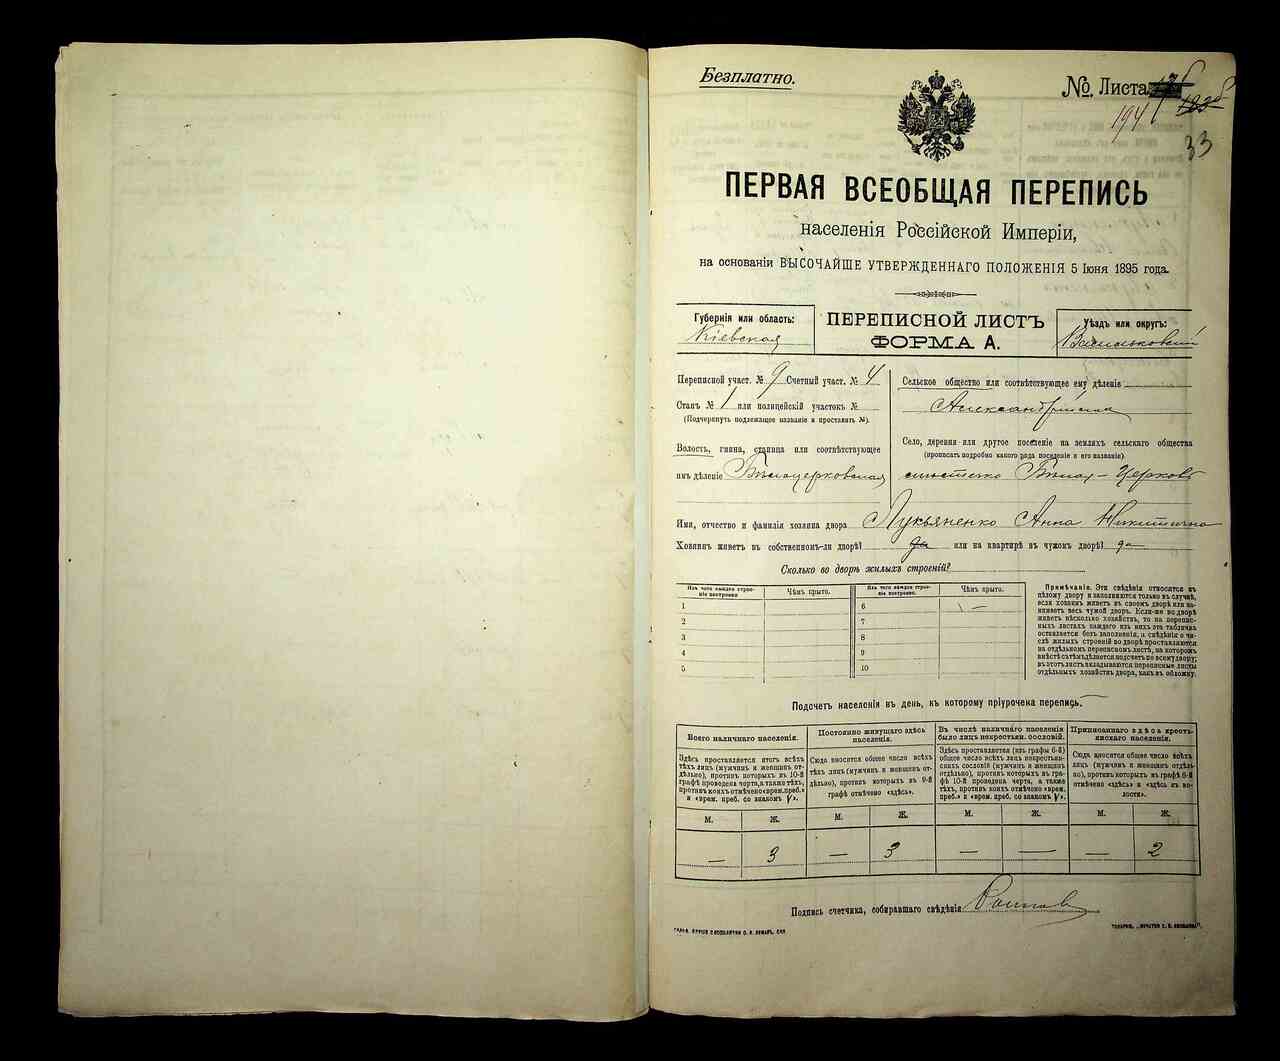 Безплатно.
№ Листа
194
33
ПЕРВАЯ ВСЕОБЩАЯ ПЕРЕПИСЬ
населенія Россійской Имперіи,
на основаніи ВЫСОЧАЙШЕ УТВЕРЖДЕННАГО ПОЛОЖЕНІЯ 5 Іюня 1895 года.
Губернія или область:
Кіевская
ПЕРЕПИСНОЙ ЛИСТЪ
ФОРМА А.
Уѣздъ или округъ:
Васильковскій
Переписной участ. № 9 Счетный участ. № 4
Станъ № 1 или полицейскій участокъ №
(Подчеркнуть подлежащее названіе и проставить №).
Волость, гмина, станица или соотвѣтствующее
имъ дѣленіе Бѣлоцерковская
Сельское общество или соотвѣтствующее ему дѣленіе
Александрійская
Село, деревня или другое поселеніе на земляхъ сельскаго общества
(прописать подробно какого рода поселеніе и его названіе)
мѣстечко Бѣлая-Церковь
Имя, отчество и фамилія хозяина двора Лукьяненко Анна Никитична
Хозяинъ живетъ въ собственномъ-ли дворѣ? да или на квартирѣ въ чужомъ дворѣ? да
Сколько во дворѣ жилыхъ строеній?
Изъ чего каждое строе-
ніе построено.
Чѣмъ крыто.
Изъ чего каждое строе-
ніе построено.
Чѣмъ крыто.
1
2
3
4
5
6
7
8
9
10
Примѣчаніе. Эти свѣдѣнія относятся къ
цѣлому двору и заполняются только въ случаѣ,
если хозяинъ живетъ въ своемъ дворѣ или на-
нимаетъ весь чужой дворъ. Если-же во дворѣ
живетъ нѣсколько хозяйствъ, то на перепис-
ныхъ листахъ каждаго изъ нихъ эта табличка
оставляется безъ заполненія, а свѣдѣнія о чи-
слѣ жилыхъ строеній во дворѣ проставляются
на отдѣльномъ переписномъ листѣ, на которомъ
вмѣстѣ съ тѣмъ дѣлается подсчетъ по всему двору;
въ этотъ листъ вкладываются переписные листы
отдѣльныхъ хозяйствъ двора, какъ въ обложку.
Подсчетъ населенія въ день, къ которому пріурочена перепись.
Всего наличнаго населенія.
Здѣсь проставляется итогъ всѣхъ
тѣхъ лицъ (мужчинъ и женщинъ от-
дѣльно), противъ которыхъ въ 10-й
графѣ проведена черта, а также тѣхъ,
противъ коихъ отмѣчено «врем. преб.»
и «врем. преб. со знакомъ V».
Постоянно живущаго здѣсь
населенія.
Сюда вносится общее число всѣхъ
тѣхъ лицъ (мужчинъ и женщинъ от-
дѣльно), противъ которыхъ въ 9-й
графѣ отмѣчено «здѣсь».
Въ числѣ наличнаго населенія
было лицъ некрестьян. сословій.
Здѣсь проставляется (изъ графы 6-й)
общее число всѣхъ лицъ некрестьян-
скихъ сословій (мужчинъ и женщинъ
отдѣльно), противъ которыхъ въ гра-
фѣ 10-й проведена черта, а также
тѣхъ, противъ коихъ отмѣчено «врем.
преб.» и «врем. преб. со знакомъ V».
Приписаннаго здѣсь кресть-
янскаго населенія.
Сюда вносится общее число всѣхъ
лицъ (мужчинъ и женщинъ отдѣль-
но), противъ которыхъ въ графѣ 8-й
отмѣчено «здѣсь» и «здѣсь въ во-
лости».
М. Ж. М. Ж. М. Ж. М. Ж.
— 3 — 3 — — — 2
Подпись счетчика, собиравшаго свѣдѣнія